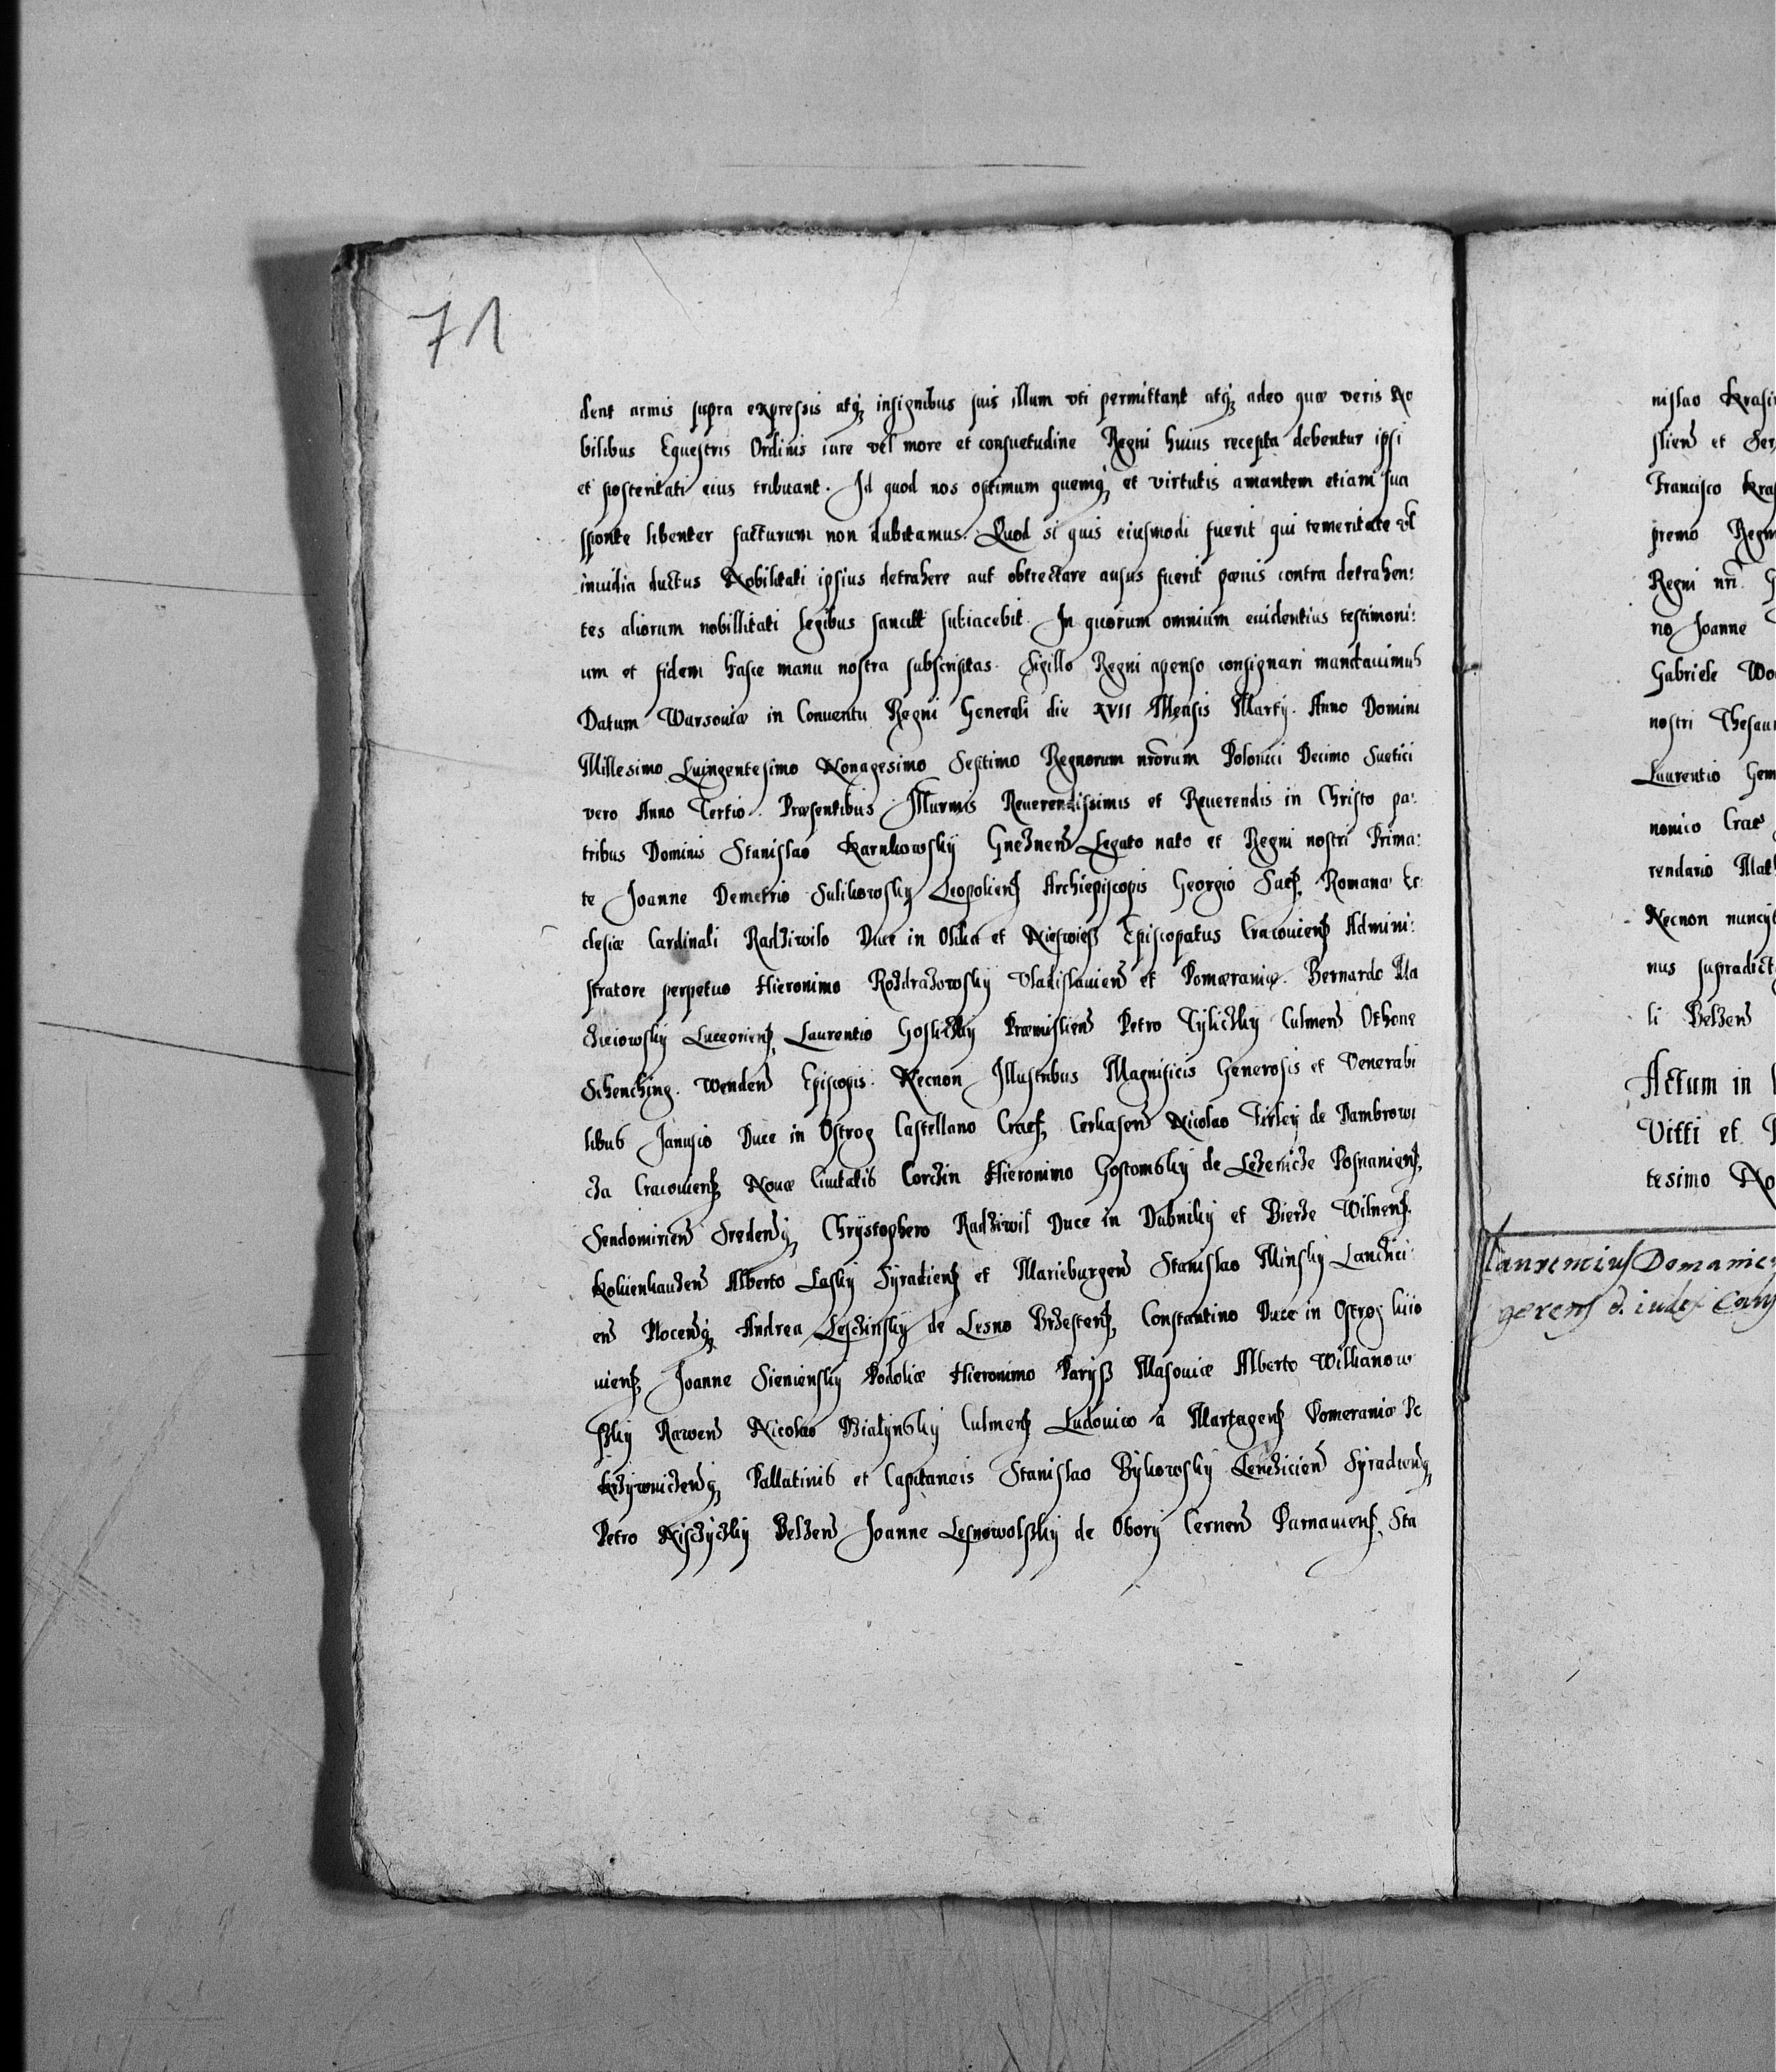 71
dent armis supra expressis atq; insignibus suis illum vti permittant atq; adeo quæ veris No
bilibus Equestris Ordinis iure vel more et consuetudine Regni huius recepta debentur ipsi
et posteritati eius tribuant. Id quod nos optimum quemq; et virtutis amantem etiam sua
sponte libenter facturum non dubitamus. Quod si quis eiusmodi fuerit qui temeritate vel
inuidia ductus Nobilitati ipsius detrahere aut obtrectare ausus fuerit pœnis contra detrahen:
tes aliorum nobillitati legibus sancitt subiacebit. In quorum omnium euidentius testimoni:
um et fidem hasce manu nostra subscriptas. Sigillo Regni apenso consignari mandauimus
Datum Warsouiæ in Conuentu Regni Generali die XVII Mensis Martij. Anno Domini
Millesimo Quingentesimo Nonagesimo Septimo Regnorum nrorum Polonici Decimo Suetici
vero Anno Tertio. Præsentibus Reuerendissimis et Reuerendis in Christo pa:
tribus Dominis Stanislao Karnkowsky Gneznen Legato nato et Regni nostri Prima:
te Joanne Demetrio Sulikowsky Leopolien Archiepiscopis Georgio Sac Romanæ Ec
clesiæ Cardinali Radziwilo Duce in Olika et Nieswiesz Episcopatus Cracouien Admini:
stratore perpetuo Hieronimo Rozdrazowsky Vladislauien et Pomæraniæ. Bernardo Ma
cieiowsky Luceorien Laurentio Goslicky Præmislien Petro Tylicky Culmen Othone
Schenching. Wenden Episcopis. Necnon Illustribus Magnificis Generosis et Venerabi
libus Janusio Duce in Ostrog Castellano Crac Cerkasen Nicolao Firley de Dambrowi
cza Cracouien Nouæ Ciuitatis Corczin Hieronimo Gostomsky de Lezenicze Posnanien
Sendomirien Sredenq; Chrystophero Radziwil Duce in Dubniky et Bierze Wilnen.
Kokienhauzen Alberto Lasky Syradien et Marieburgen Stanislao Minsky Lancici
en Plocenq; Andrea Lesczinsky de Lesno Brzesten Constantino Duce in Ostrog kiio
uien Joanne Sieniensky Podoliæ Hieronimo Parysz Masouiæ Alberto Wilkanow
sky Rawen Nicolao Dzialynsky Culmen Ludouico à Martagen Pomeraniæ Pc
Krzywniczenq; Pallatinis et Capitaneis Stanislao Bykowsky Lencicien Syradienq;
Petro Nisczycky Belzen Joanne Lesnowolsky de Obory Cernen Parnauien Sta
nislao
slien et
Francisco
premo
Regni nri
no Joanne
Gabriele
nostri
Laurentio
nonico Crac
rendario
Necnon
nus
li Belzen
Actum in
Vitti et
tesimo